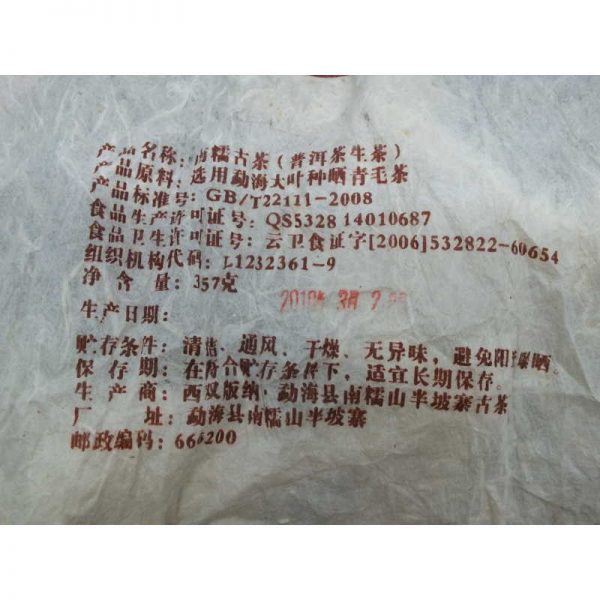 产品名称：南糯古茶（普洱茶生茶）
产品原料：选用勐海大叶种晒青毛茶
产品标准号：GB/T22111-2008
食品生产许可证号：QS5328 14010687
食品卫生许可证号：云卫食证字[2006]532822-60654
组织机构代码：L1232361-9
净含量：357克
生产日期：2010年 3月 2
贮存条件：清洁、通风、干燥、无异味，避免阳 曝晒。
保存期：在符合贮存条件下，适宜长期保存。
生产商：西双版纳·勐海县南糯山半坡寨古茶
厂址：勐海县南糯山半坡寨
邮政编码：666200